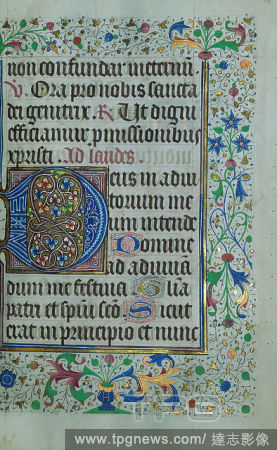 non confundar ineternũ.
V. Ora pro nobis sancta
dei genitrix. R. Ut digni
efficiamur pmissionibus
xpristi. Ad laudes.
Deus in adiu
torium me
um intende
Domine
ad adiuvã
dum me festina. Glia
patri et spiũi scõ. Sicut
erat in principio et nunc
www.tpgnews.com/ 達志影像